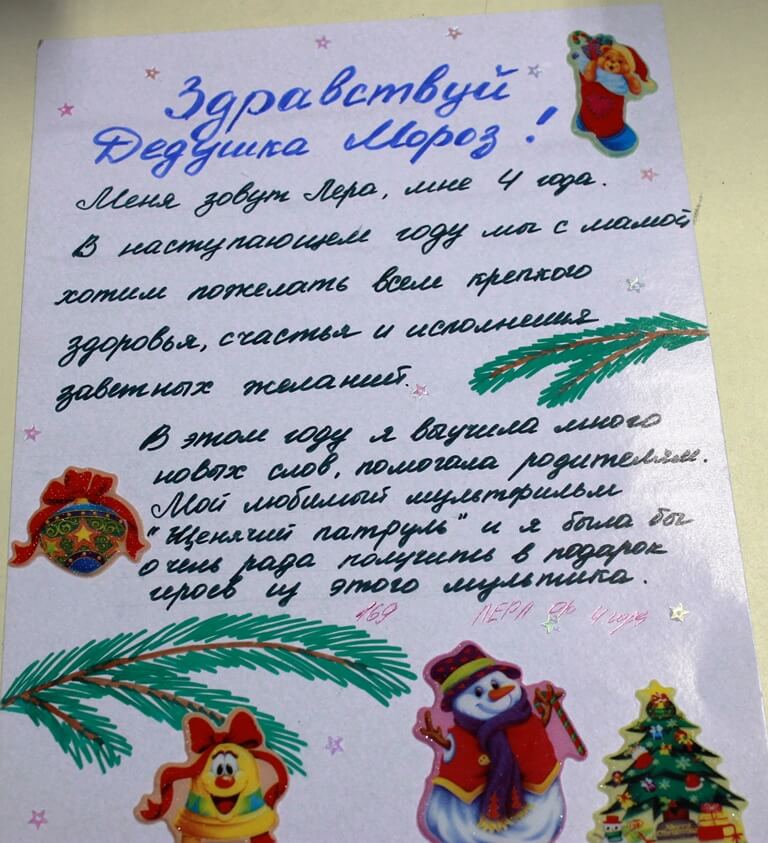 Здравствуй
Дедушка Мороз!
Меня зовут Лера, мне 4 года.
В наступающем году мы с мамой
хотим пожелать всем крепкого
здоровья, счастья и исполнения
заветных желаний.
В этом году я выучила много
новых слов, помогала родителям.
Мой любимый мультфильм
"Щенячий патруль" и я была бы
очень рада получить в подарок
героев из этого мультика.
169 ЛЕРА 4 года